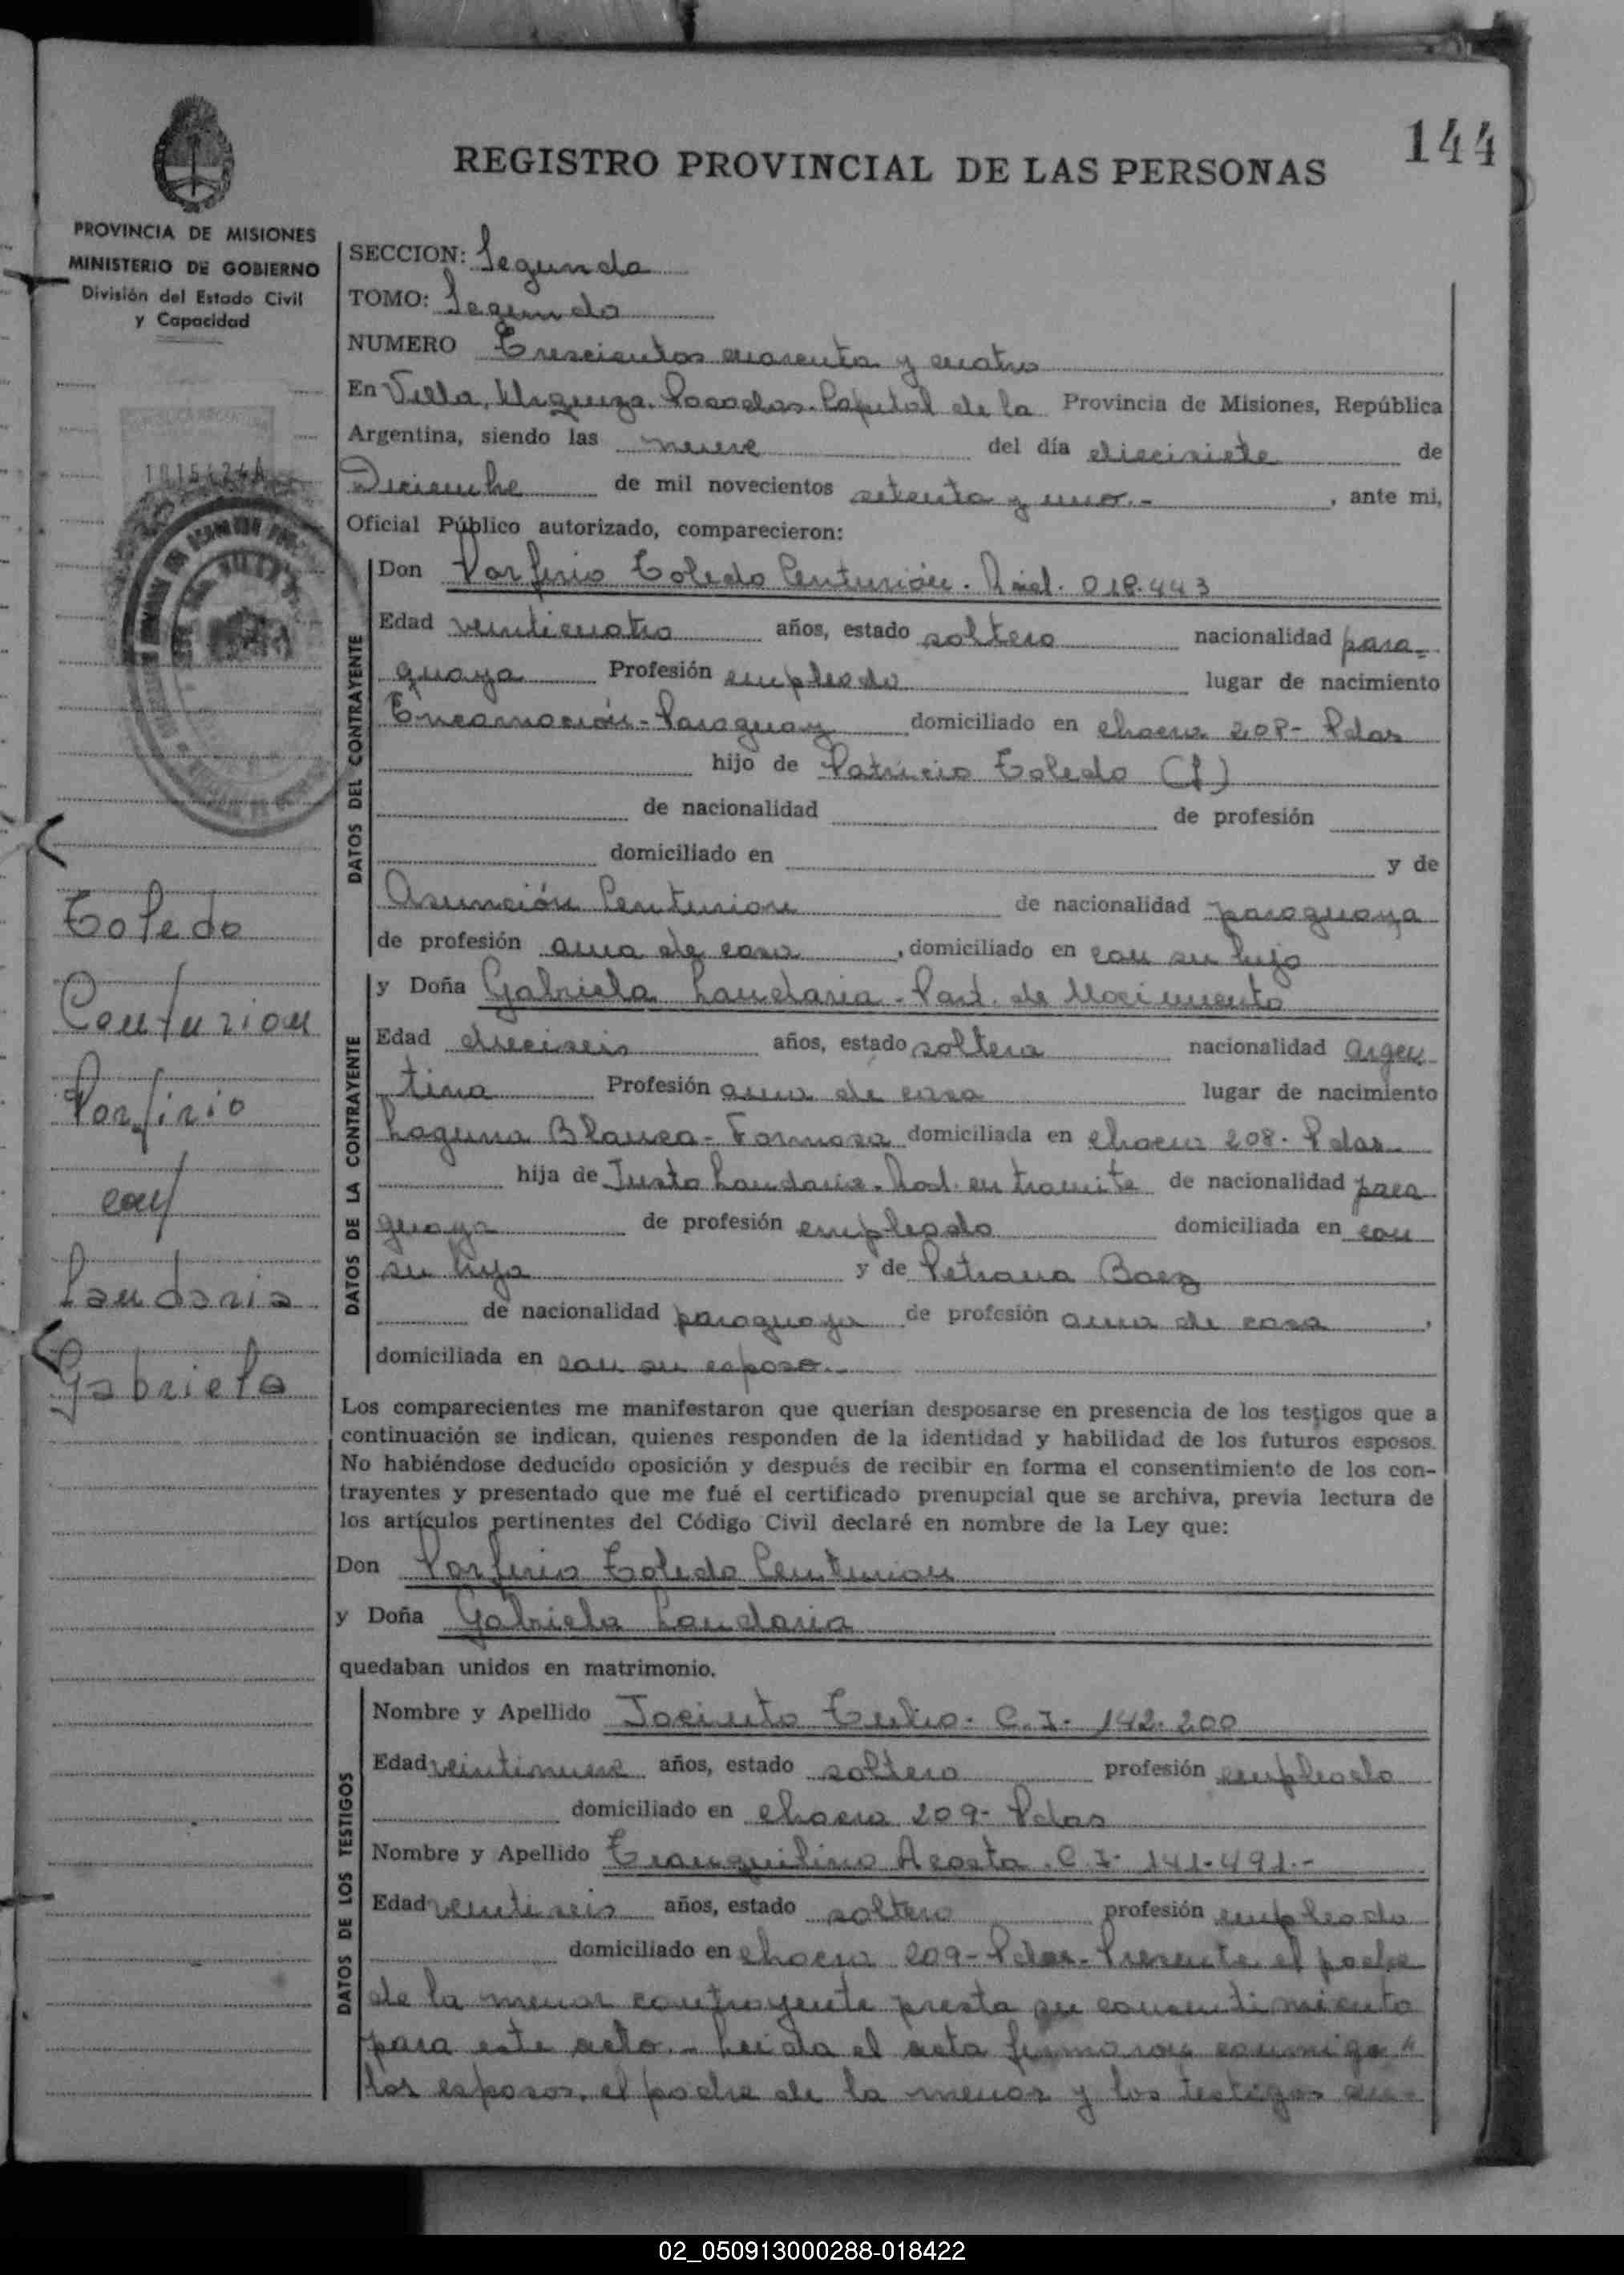 144
REGISTRO PROVINCIAL DE LAS PERSONAS
PROVINCIA DE MISIONES
MINISTERIO DE GOBIERNO
División del Estado Civil
y Capacidad
Toledo
Centurion
Porfirio
con
Landaria
Gabriela
SECCION: Segunda
TOMO: Segundo
NUMERO Trescientos cuarenta y cuatro
En Villa Urquiza. Posadas. Capital de la Provincia de Misiones, República
Argentina, siendo las nueve del día diecisiete de
Diciembre de mil novecientos setenta y uno.- , ante mi,
Oficial Público autorizado, comparecieron:
DATOS DEL CONTRAYENTE
Don Porfirio Toledo Centurión. 018.443
Edad veinticuatro años, estado soltero nacionalidad para-
guaya Profesión empleado lugar de nacimiento
Encarnación-Paraguay domiciliado en chacra 208- Pdas
hijo de Patricio Toledo (f)
de nacionalidad de profesión
domiciliado en y de
Asunción Centurion de nacionalidad paraguaya
de profesión ama de casa , domiciliado en con su hijo
DATOS DE LA CONTRAYENTE
y Doña Gabriela Landaria - Part. de Nacimiento
Edad dieciseis años, estado soltera nacionalidad argen
tina Profesión ama de casa lugar de nacimiento
Laguna Blanca- Formosa domiciliada en chacra 208- Pdas
hija de Justo Landaria. Rad. en tramite de nacionalidad para
guaya de profesión empleado domiciliada en con
su hija y de Petrona Baez
de nacionalidad paraguaya de profesión ama de casa ,
domiciliada en con su esposo.-
Los comparecientes me manifestaron que querían desposarse en presencia de los testigos que a
continuación se indican, quienes responden de la identidad y habilidad de los futuros esposos.
No habiéndose deducido oposición y después de recibir en forma el consentimiento de los con-
trayentes y presentado que me fué el certificado prenupcial que se archiva, previa lectura de
los artículos pertinentes del Código Civil declaré en nombre de la Ley que:
Don Porfirio Toledo Centurion
y Doña Gabriela Landaria
quedaban unidos en matrimonio.
DATOS DE LOS TESTIGOS
Nombre y Apellido Jacinto C.I. 142.200
Edad veintinueve años, estado soltero profesión empleado
domiciliado en chacra 209- Pdas
Nombre y Apellido Tranquilino Acosta. C.I. 141.491.-
Edad veintiseis años, estado soltero profesión empleado
domiciliado en chacra 209- Pdas- Presente el padre
de la menor contrayente presta su consentimiento
para este acto.- Leida el acta firmaron conmigo
los esposos, el padre de la menor y los testigos
02_050913000288-018422